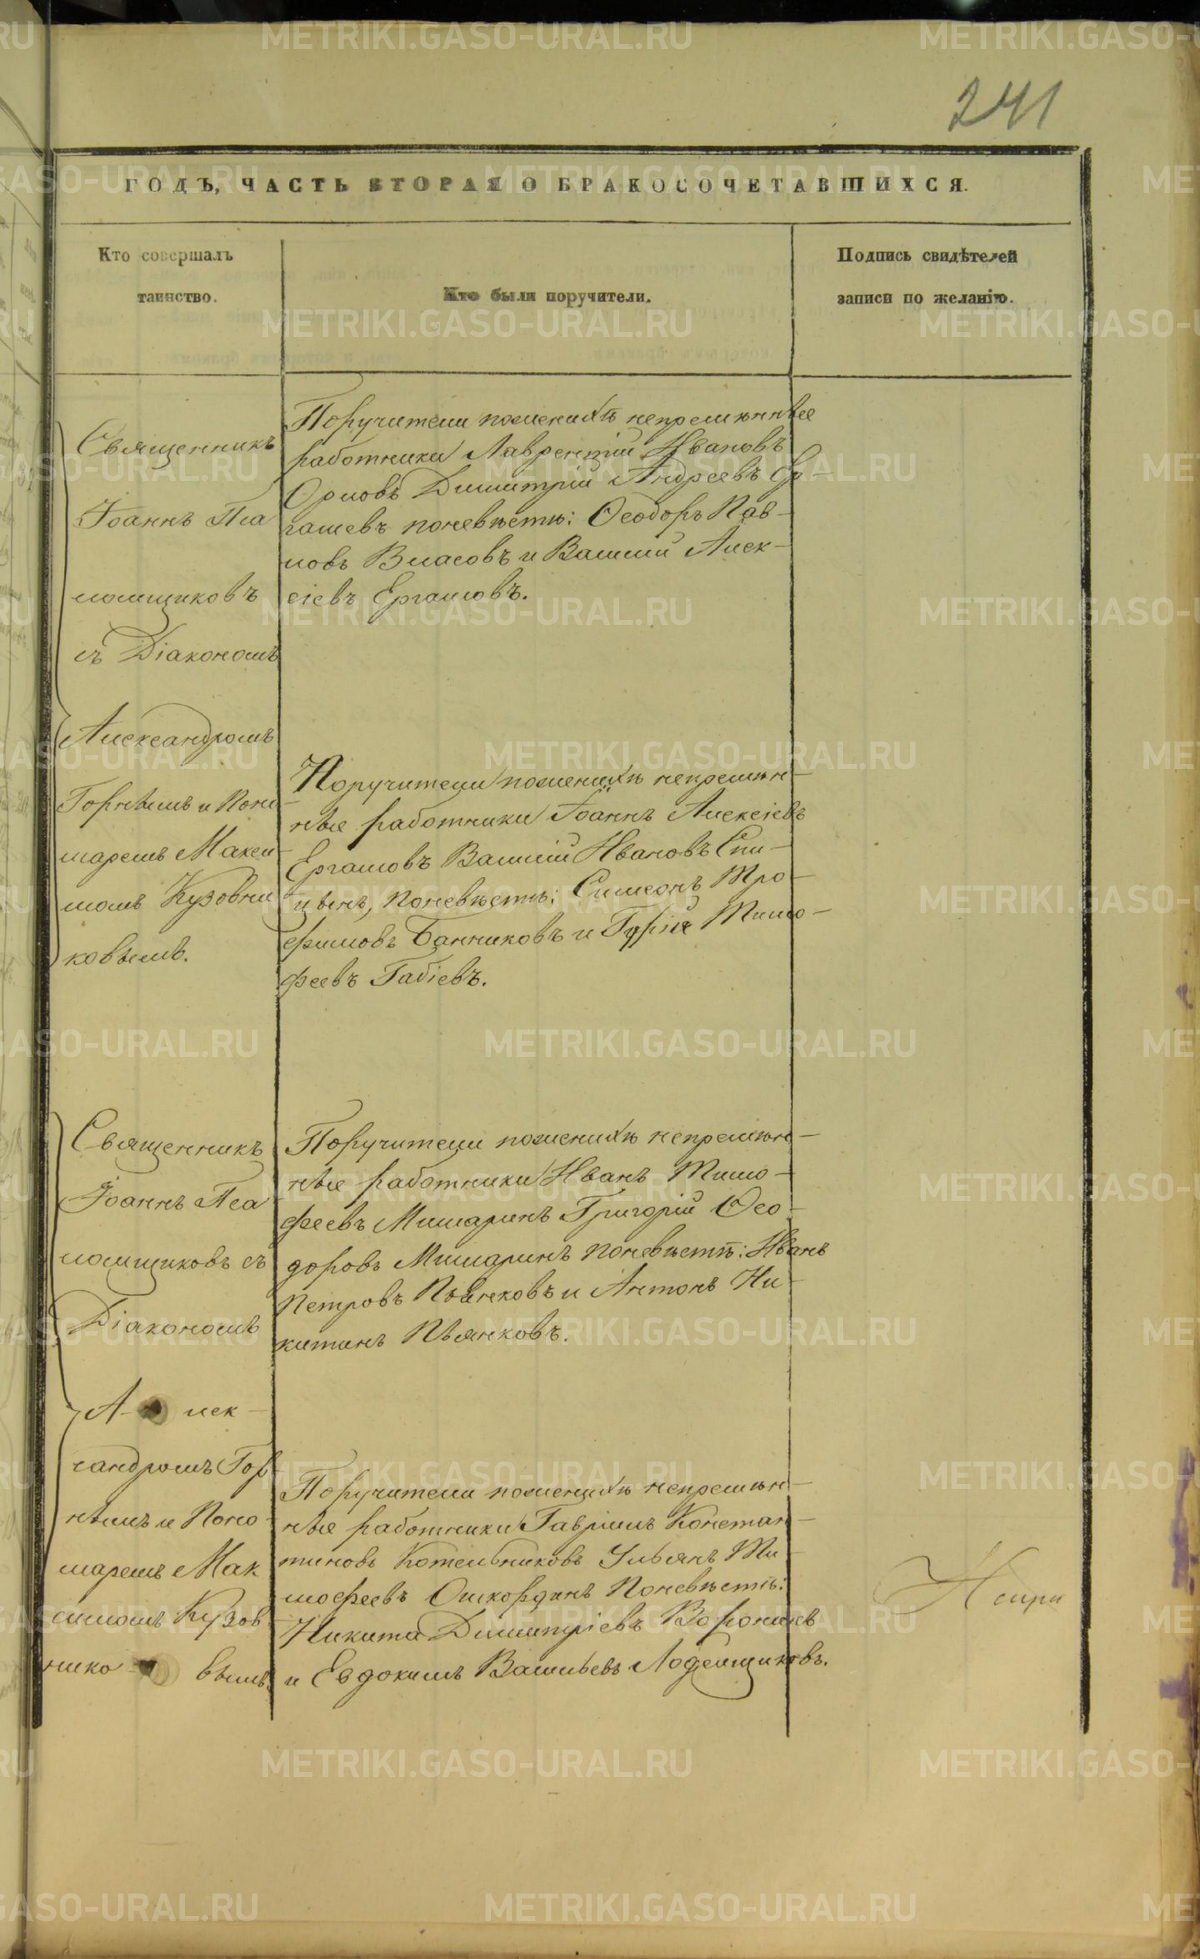 241
ГОДЪ, ЧАСТЬ ВТОРАЯ О БРАКОСОЧЕТАВШИХСЯ.
Кто совершалъ
таинство.
Кто были поручители.
Подпись свидѣтелей
записи по желанію.
Священникъ
Іоаннъ Пса
ломщиковъ
съ Діакономъ
Александромъ
Горнымъ и Поно
маремъ Макси
момъ Кузовни
ковымъ.
Поручители пожениxѣ непремѣнные
работники Лаврентій Ивановъ
Орловъ Димитрій Андреевъ Ер-
гашевъ поневѣстѣ: Ѳеодоръ Пав-
ловъ Власовъ и Василій Алек-
сіевъ Ергашовъ.
Поручители поженихѣ непремѣн-
ные работники Іоаннъ Алексіевъ
Ергашовъ Василій Ивановъ Спи-
цынъ, поневѣстѣ: Симеонъ Тро-
фимовъ Банниковъ и Гурій Тимо-
феевъ Габіевъ.
Священникъ
Іоаннъ Пса
ломщиковъ съ
Діакономъ
А- лек-
сандромъ Гор
нымъ и Поно-
маремъ Мак
симомъ Кузов
нико- вымъ.
Поручители поженихѣ непремѣн-
ные работники Иванъ Тимо-
феевъ Мишаринъ Григорій Ѳео-
доровъ Мишаринъ поневѣстѣ: Иванъ
Петровъ Пьянковъ и Антонъ Ни-
китинъ Пьянковъ.
Поручители поженихѣ непремѣн-
ные работники Гавріилъ Констан-
тиновъ Котельниковъ Ульянъ Ти-
мофеевъ Ошкординъ Поневѣстѣ:
Никита Димитріевъ
и Евдокимъ Васильевъ Лодейщиковъ.
METRIKI.GASO-URAL.RU